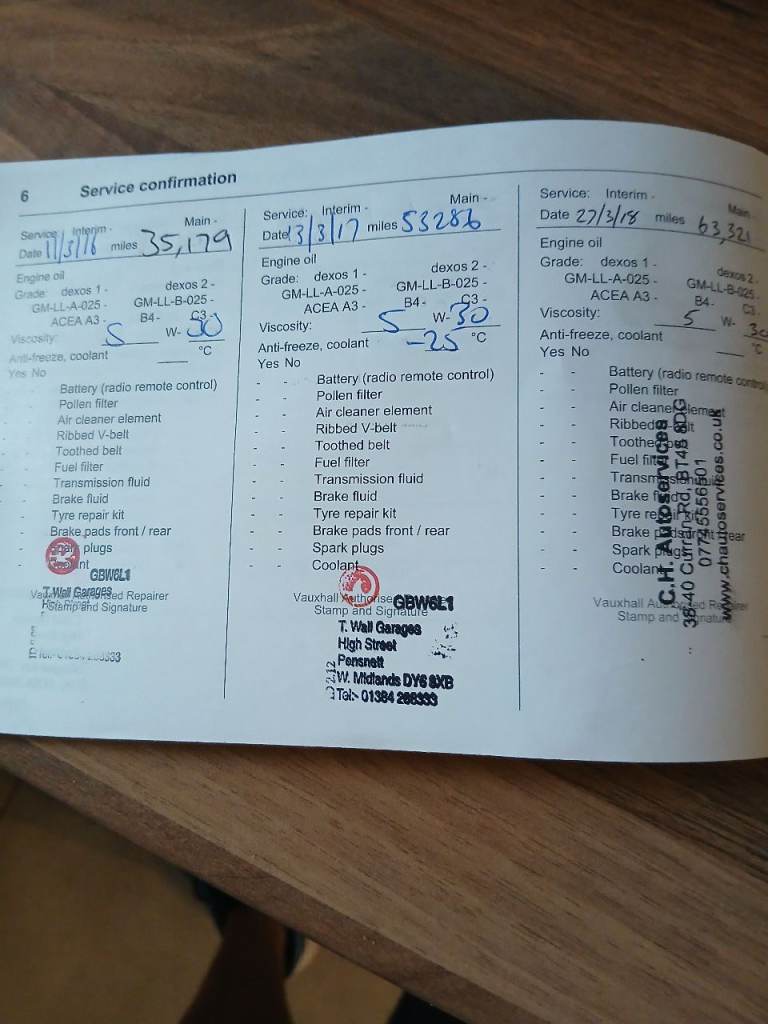 6 Service confirmation
Service: Interim - Main -
Date 11/3/16 miles 35,179
Engine oil
Grade: dexos 1 - dexos 2 -
GM-LL-A-025 - GM-LL-B-025 -
ACEA A3 - B4 - C3 -
Viscosity: 5 W- 30
Anti-freeze, coolant °C
Yes No
Battery (radio remote control)
- Pollen filter
- Air cleaner element
- Ribbed V-belt
- Toothed belt
- Fuel filter
- Transmission fluid
- Brake fluid
- Tyre repair kit
- Brake pads front / rear
- Spark plugs
- Coolant
GBW6L1
Vauxhall Authorised Repairer
Stamp and Signature
T. Wall Garages
Service: Interim - Main -
Date 13/3/17 miles 53286
Engine oil
Grade: dexos 1 - dexos 2 -
GM-LL-A-025 - GM-LL-B-025 -
ACEA A3 - B4 - C3 -
Viscosity: 5 W- 30
Anti-freeze, coolant -25 °C
Yes No
- - Battery (radio remote control)
- - Pollen filter
- - Air cleaner element
- - Ribbed V-belt
- - Toothed belt
- - Fuel filter
- - Transmission fluid
- - Brake fluid
- - Tyre repair kit
- - Brake pads front / rear
- - Spark plugs
- - Coolant
Vauxhall Authorised
Stamp and Signature
GBW6L1
T. Wall Garages
High Street
Pensnett
W. Midlands DY6 8XB
Tel:- 01384 288333
Service: Interim - Main -
Date 27/3/18 miles 63,321
Engine oil
Grade: dexos 1 - dexos 2 -
GM-LL-A-025 - GM-LL-B-025 -
ACEA A3 - B4 - C3
Viscosity: 5 W- 30
Anti-freeze, coolant °C
Yes No
- - Battery (radio remote control)
- - Pollen filter
- - Air cleaner element
- - Ribbed V-belt
- - Toothed belt
- - Fuel filter
- - Transmission fluid
- - Brake fluid
- - Tyre repair kit
- - Brake pads front / rear
- - Spark plugs
- - Coolant
Vauxhall Authorised Repairer
Stamp and Signature
C.H. Autoservices
38-40 Curran Rd, BT45 8DG
07745556501
www.chautoservices.co.uk